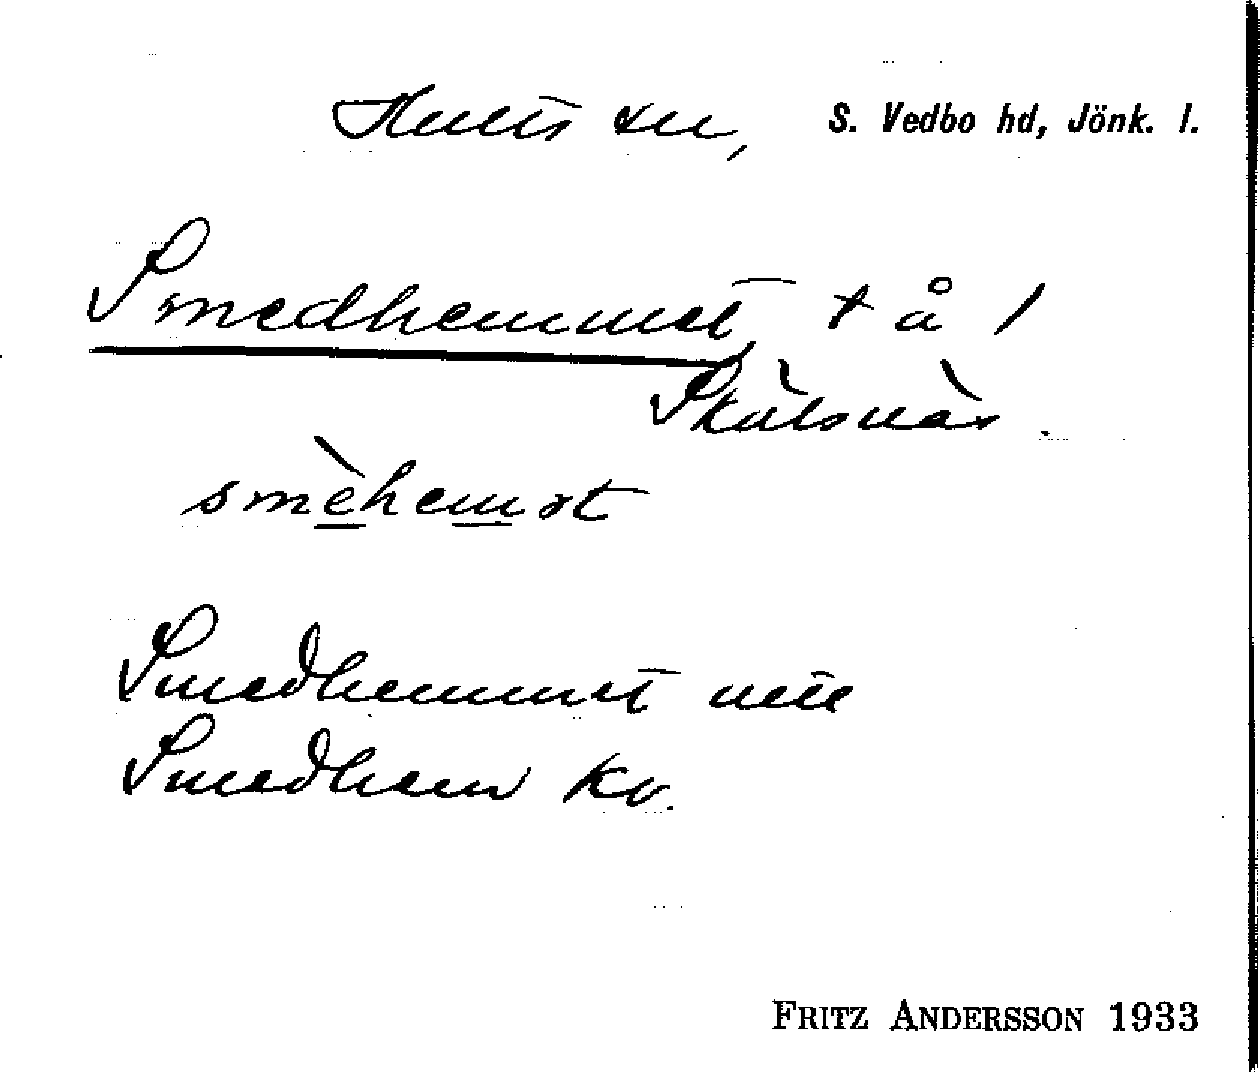 Hults sn, S. Vedbo hd, Jönk. l.
Smedhemmet t å 1
Skälsnäs.
smèhemət
Smedhemmet
Smedhem kv.
FRITZ ANDERSSON 1933